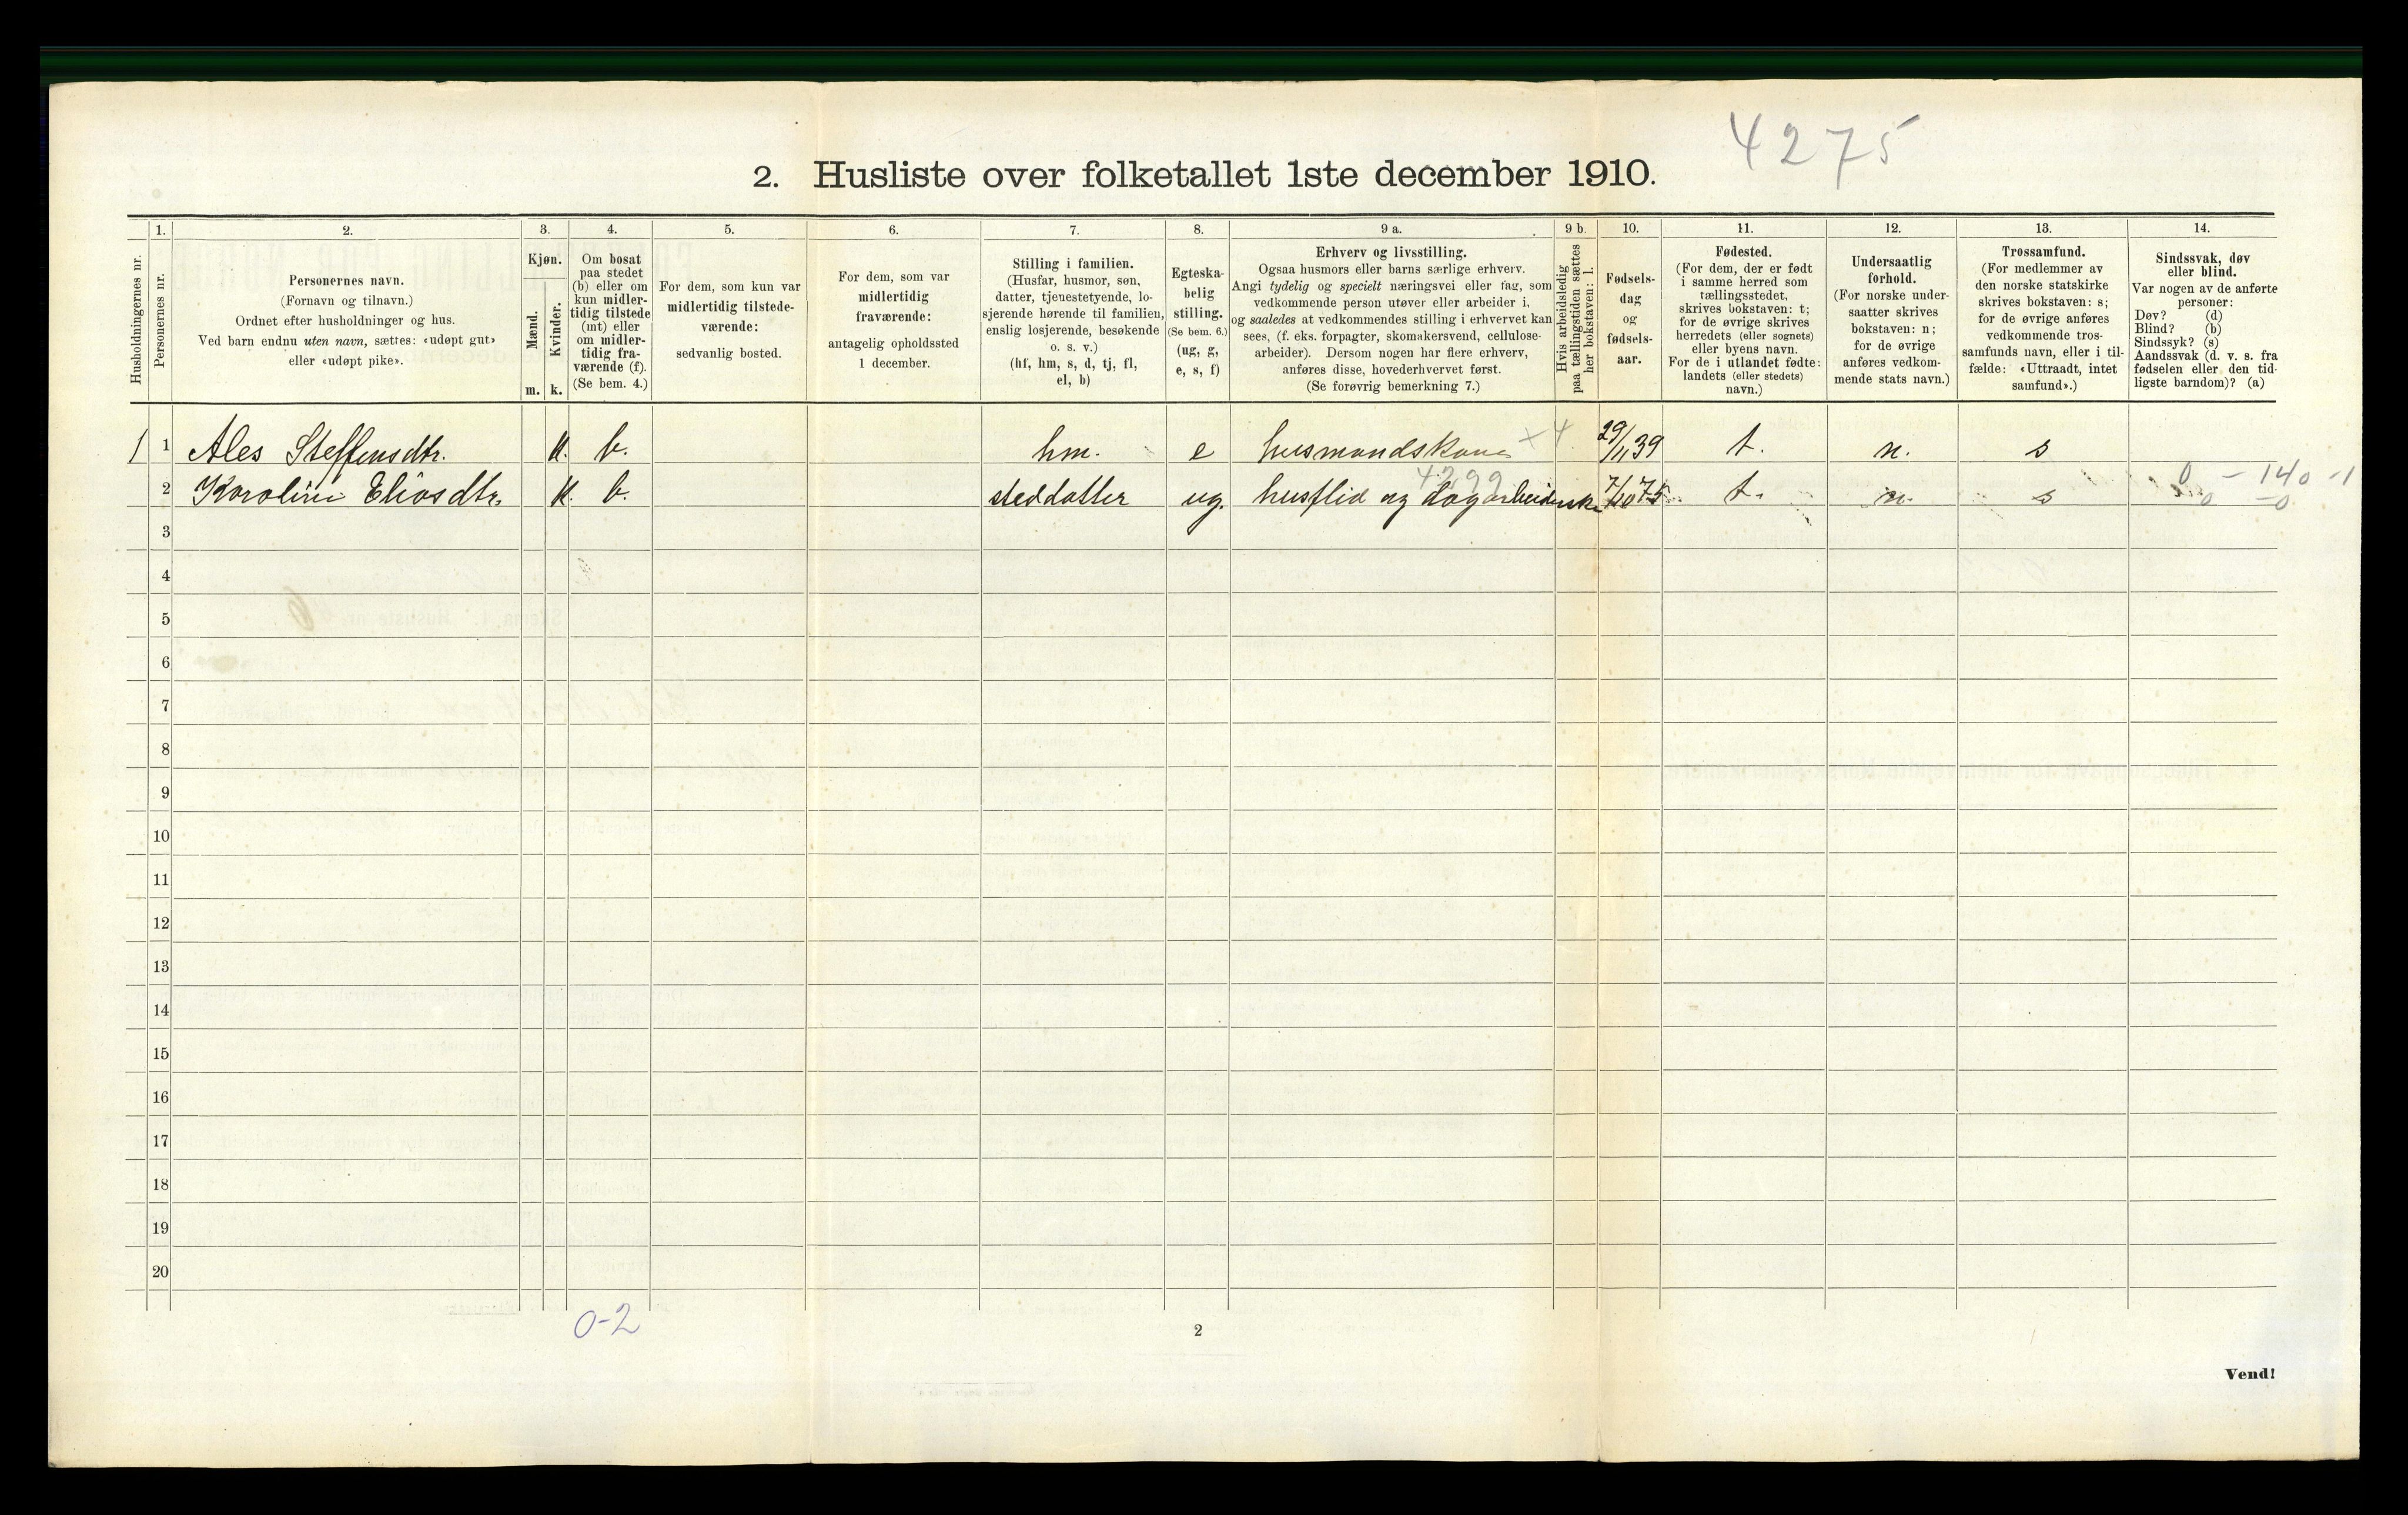 4275
2. Husliste over folketallet 1ste december 1910.
Husholdningernes nr.
1.
Personernes nr.
2.
Personernes navn.
(Fornavn og tilnavn.)
Ordnet efter husholdninger og hus.
Ved barn endnu uten navn, sættes: «udøpt gut»
eller «udøpt pike».
3.
Kjøn.
Mænd.
Kvinder.
m. k.
4.
Om bosat
paa stedet
(b) eller om
kun midler-
tidig tilstede
(mt) eller
om midler-
tidig fra-
værende (f).
(Se bem. 4.)
5.
For dem, som kun var
midlertidig tilstede-
værende:
sedvanlig bosted.
6.
For dem, som var
midlertidig
fraværende:
antagelig opholdssted
1 december.
7.
Stilling i familien.
(Husfar, husmor, søn,
datter, tjenestetyende, lo-
sjerende hørende til familien,
enslig losjerende, besøkende
o. s. v.)
(hf, hm, s, d, tj, fl,
el, b)
8.
Egteska-
belig
stilling.
(Se bem. 6.)
(ug, g,
e, s, f)
9 a.
Erhverv og livsstilling.
Ogsaa husmors eller barns særlige erhverv.
Angi tydelig og specielt næringsvei eller fag, som
vedkommende person utøver eller arbeider i,
og saaledes at vedkommendes stilling i erhvervet kan
sees, (f. eks. forpagter, skomakersvend, cellulose-
arbeider). Dersom nogen har flere erhverv,
anføres disse, hovederhvervet først.
(Se forøvrig bemerkning 7.)
9 b.
Hvis arbeidsledig
paa tællingstiden sættes
her bokstaven: l.
10.
Fødsels-
dag
og
fødsels-
aar.
11.
Fødested.
(For dem, der er født
i samme herred som
tællingsstedet,
skrives bokstaven: t;
for de øvrige skrives
herredets (eller sognets)
eller byens navn.
For de i utlandet fødte:
landets (eller stedets)
navn.)
12.
Undersaatlig
forhold.
(For norske under-
saatter skrives
bokstaven: n;
for de øvrige
anføres vedkom-
mende stats navn.)
13.
Trossamfund.
(For medlemmer av
den norske statskirke
skrives bokstaven: s;
for de øvrige anføres
vedkommende tros-
samfunds navn, eller i til-
fælde: «Uttraadt, intet
samfund».)
14.
Sindssvak, døv
eller blind.
Var nogen av de anførte
personer:
Døv? (d)
Blind? (b)
Sindssyk? (s)
Aandssvak (d. v. s. fra
fødselen eller den tid-
ligste barndom)? (a)
1 1 Ales Steffensdtr. k. b. hm. e husmandskone x4 29/11 39 t. n. s
0 - 140 -1
4299
2 Karoline Eliasdtr. k. b. steddatter ug. husflid og dagarbeiderske 7/10 75 t. n. s
0 -0
3
4
5
6
7
8
9
10
11
12
13
14
15
16
17
18
19
20
0-2
2
Vend!